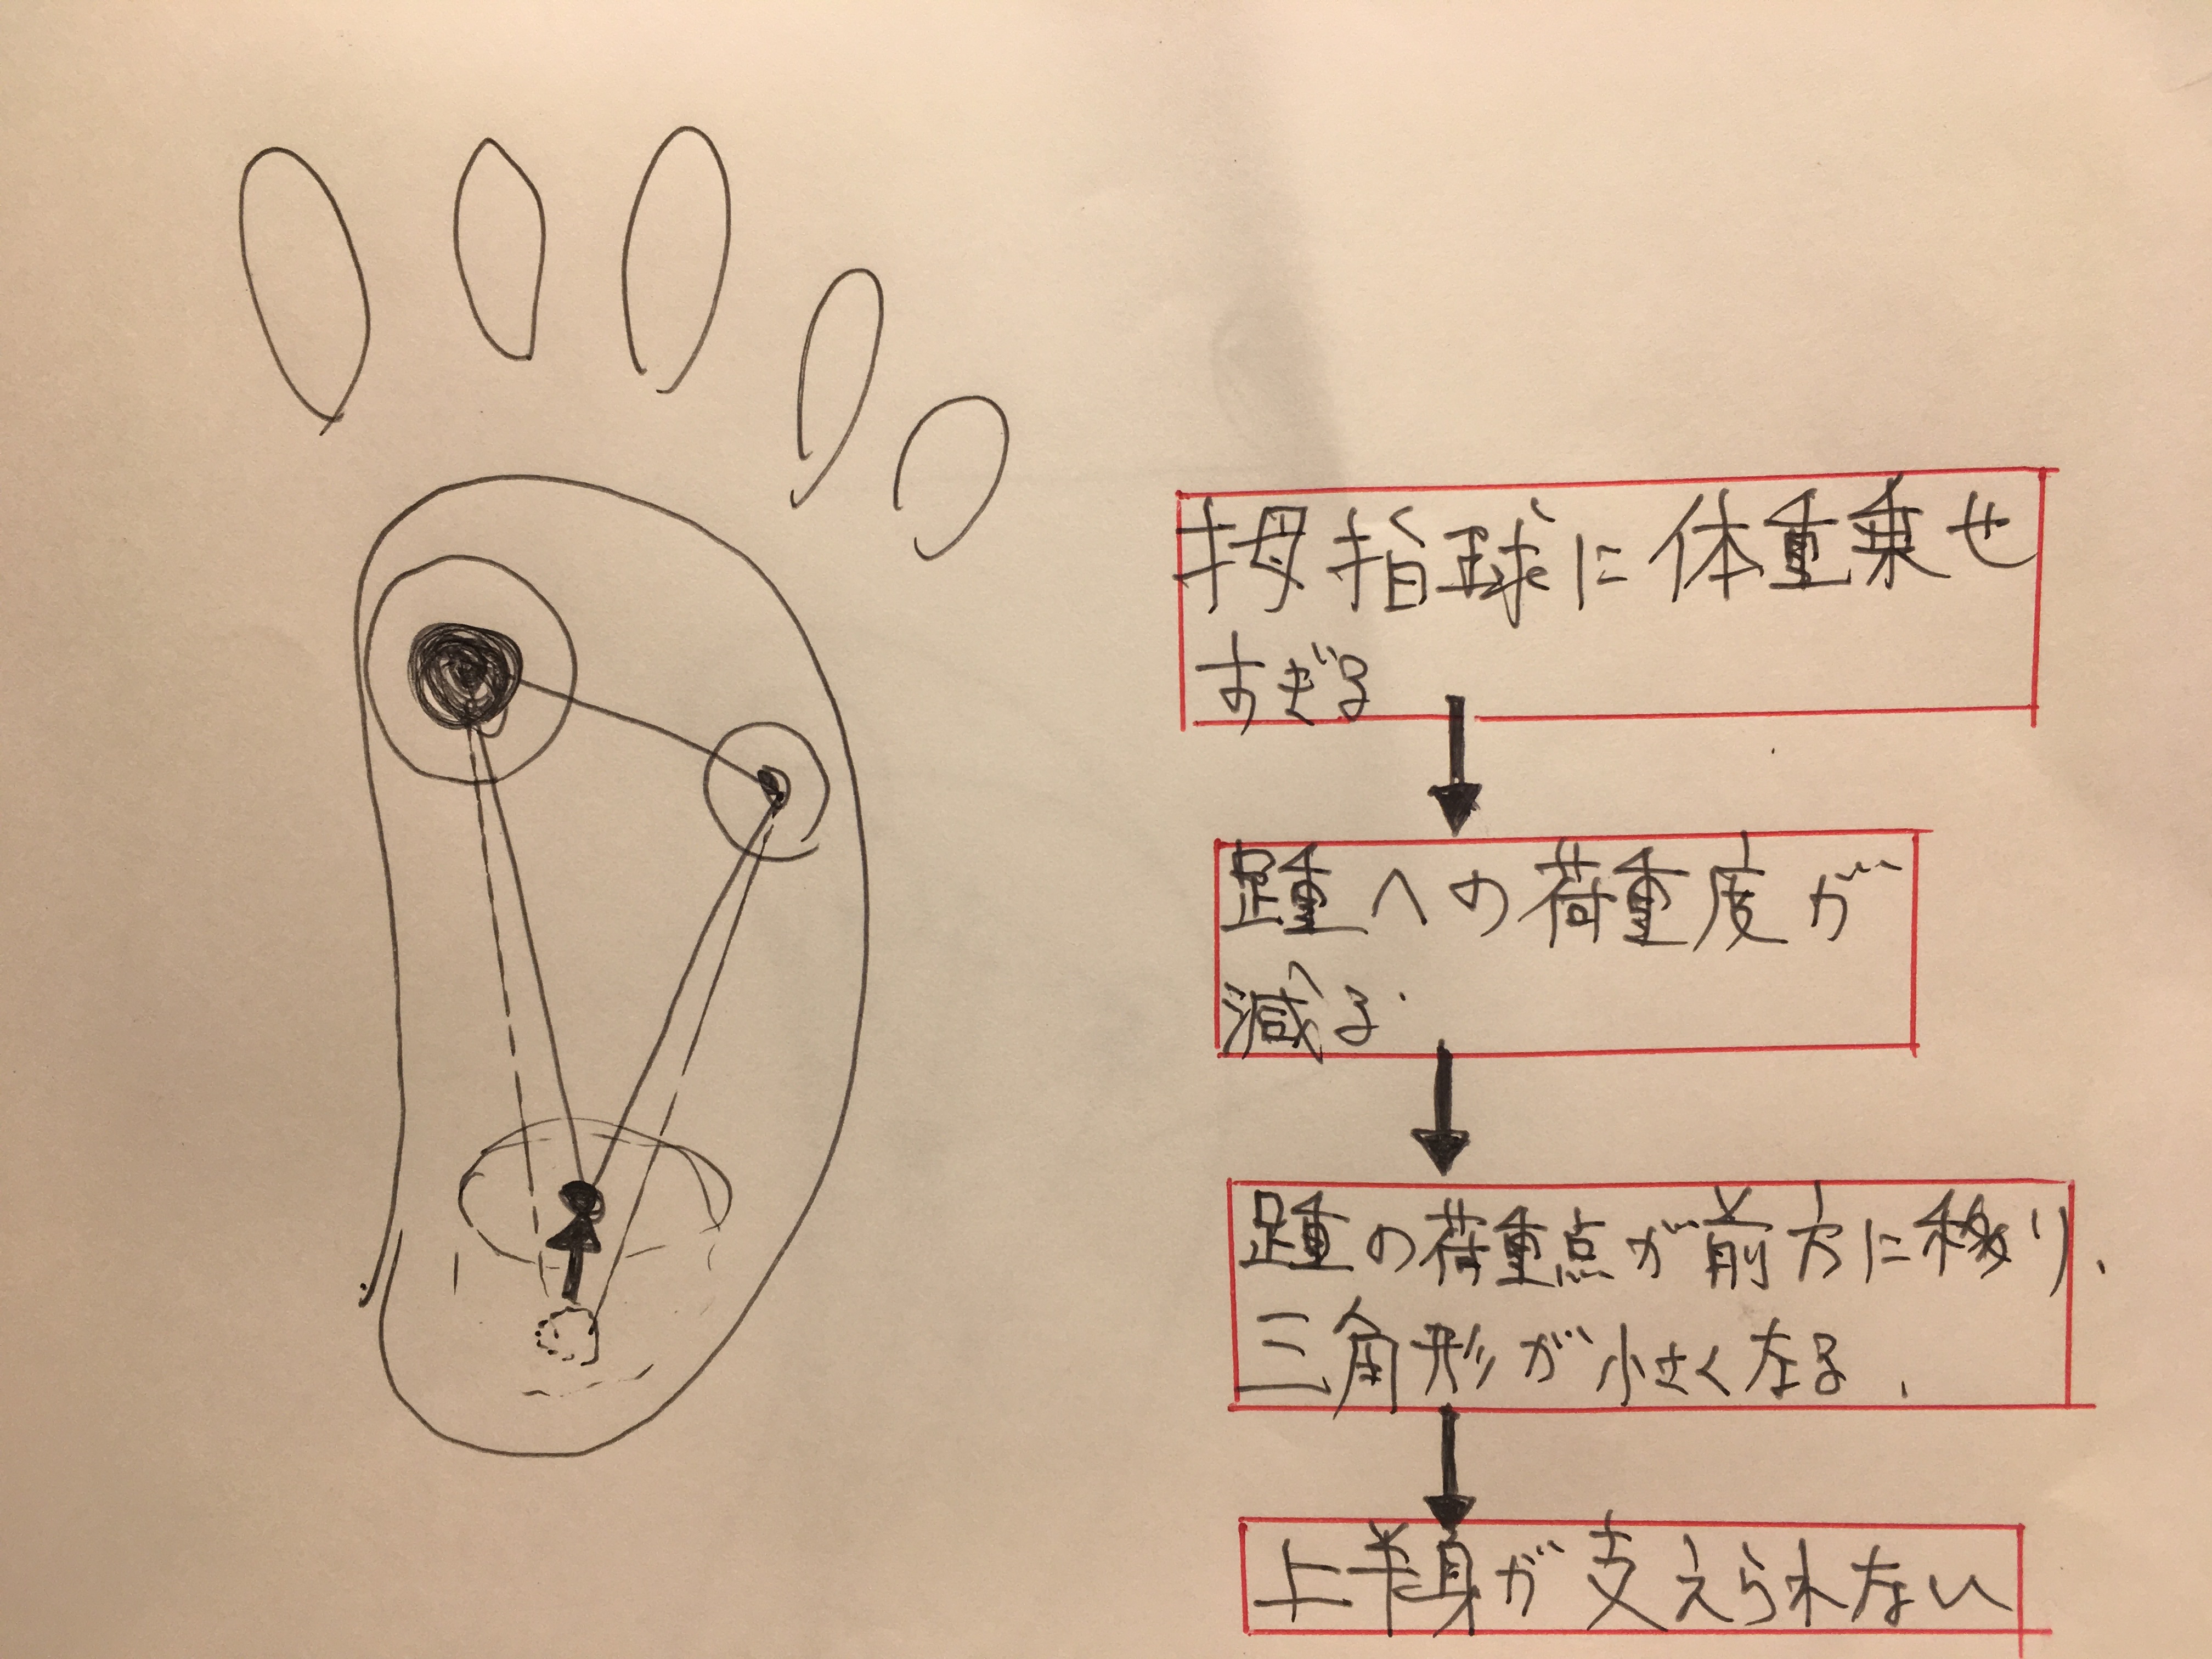 拇指球に体重乗せ
すぎる
踵への荷重度が
減る.
踵の荷重点が前方に移り、
三角形が小さくなる、
上半身が支えられない